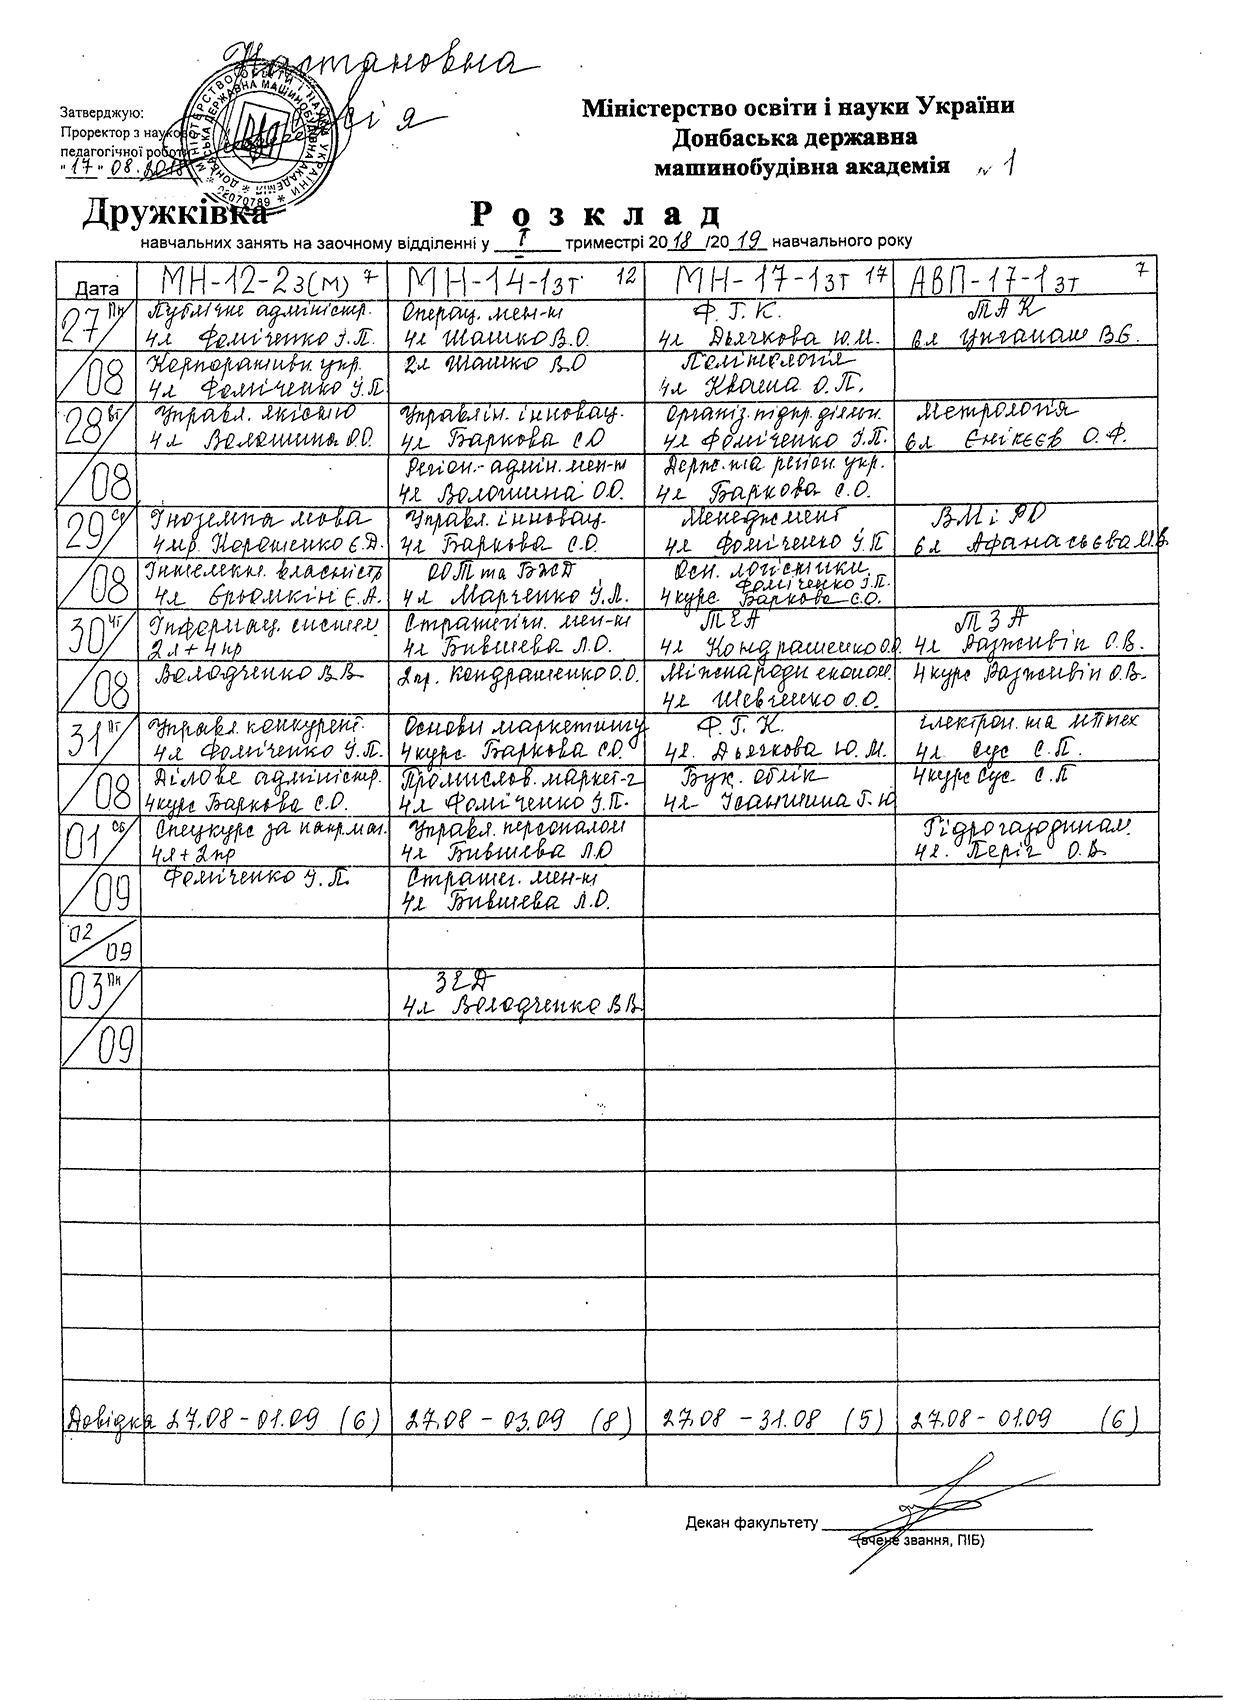 Настановна
сесія
Затверджую:
Проректор з науково
педагогічної роботи
"17" 08.2018
Міністерство освіти і науки України
Донбаська державна
машинобудівна академія № 1
Дружківка
Розклад
навчальних занять на заочному відділенні у I триместрі 2018/2019 навчального року
Дата МН-12-2з(м) 7 МН-14-1зт 12 МН-17-1зт 17 АВП-17-1зт 7
27 Пн Публічне адміністр. Операц. мен-т Ф.Г.К. ТАК
4л Фоміченко І.П. 4л Шашко В.О. 4л Дьячкова Ю.М. 6л В.Б.
/08 Корпоративн упр. 2л Шашко В.О Політологія
4л Фоміченко І.П 4л Кваша О.П.
28 Вт Управл. якістю Управлін. інновац. Організ. підпр. діяльн. Метрологія
4л Волошина О.О. 4л Баркова С.О 4л Фоміченко І.П. 6л Єнікєєв О.Ф.
/08 Регіон.-адмін. мен-т Держ. та регіон. упр.
4л Волошина О.О. 4л Баркова С.О.
29 Ср Іноземна мова Управл. інновац. Менеджмент ВМ і
4пр. Корошенко Є.Д. 4л Баркова С.О. 4л Фоміченко І.П 6л Афанасьєва М.А.
/08 Інтелект. власність ООТ та БЖД Осн. логістики
4л Єрьомкін Є.А. 4л Марченко І.Л. Фоміченко І.П.
4курс Баркова С.О.
30 Чт Інформац. систем Стратегічн. мен-т ТЕА ТЗА
2л + 4пр 4л Бившева Л.О. 4л Кондрашенко О.О. 4л Разживін О.В.
/08 Володченко В.В 2пр. Кондрашенко О.О. Міжнародн економ. 4курс Разживін О.В.
4л Шевченко О.О.
31 Пт Управл. конкурент. Основи маркетингу Ф.Г.К. електрон. та мпвех
4л Фоміченко І.П. 4курс Баркова С.О. 4л. Дьячкова Ю.М. 4л Сус С.П.
/08 Ділове адміністр. Промислов. маркет-г Бух. облік 4курс Сус С.П
4курс Баркова С.О. 4л Фоміченко І.П. 4л Ісанчина Г.Ю
01 Сб Спецкурс за напрмом. Управл. персоналом Гідрогазодинам.
4л + 2пр 4л Бившева Л.О 4л. Періг О.В
/09 Фоміченко І.П. Стратег. мен-т
4л Бившева Л.О.
02/09
03 Пн ЗЕД
4л Володченко В.В.
/09
Довідка 27.08 - 01.09 (6) 27.08 - 03.09 (8) 27.08 - 31.08 (5) 27.08 - 01.09 (6)
Декан факультету
(вчене звання, ПІБ)